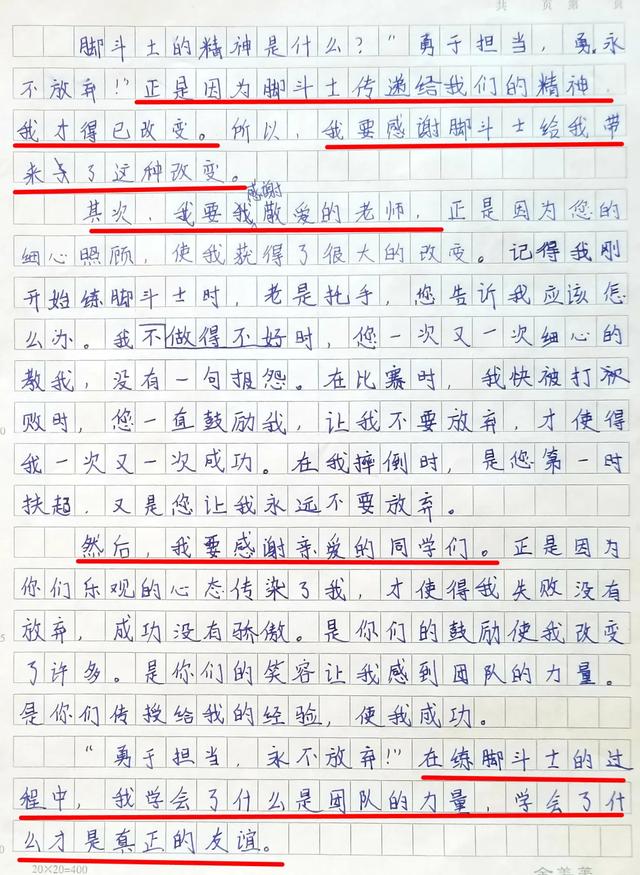 共 页 第 页
脚斗士的精神是什么？”勇于担当，勇永
不放弃！”正是因为脚斗士传递给我们的精神，
我才得已改变。所以，我要感谢脚斗士给我带
来了这种改变。
其次，我要感谢敬爱的老师，正是因为您的
细心照顾，使我获得了很大的改变。记得我刚
开始练脚斗士时，老是扎手，您告诉我应该怎
么办。我不做得不好时，您一次又一次细心的
教我，没有一句报怨。在比赛时，我快被打败
败时，您一直鼓励我，让我不要放弃，才使得
我一次又一次成功。在我摔倒时，是您第一时
扶起，又是您让我永远不要放弃。
然后，我要感谢亲爱的同学们。正是因为
你们乐观的心态传染了我，才使得我失败没有
放弃，成功没有骄傲。是你们的鼓励使我改变
了许多。是你们的笑容让我感到团队的力量。
是你们传授给我的经验，使我成功。
“勇于担当，永不放弃！”在练脚斗士的过
程中，我学会了什么是团队的力量，学会了什
么才是真正的友谊。
20×20=400